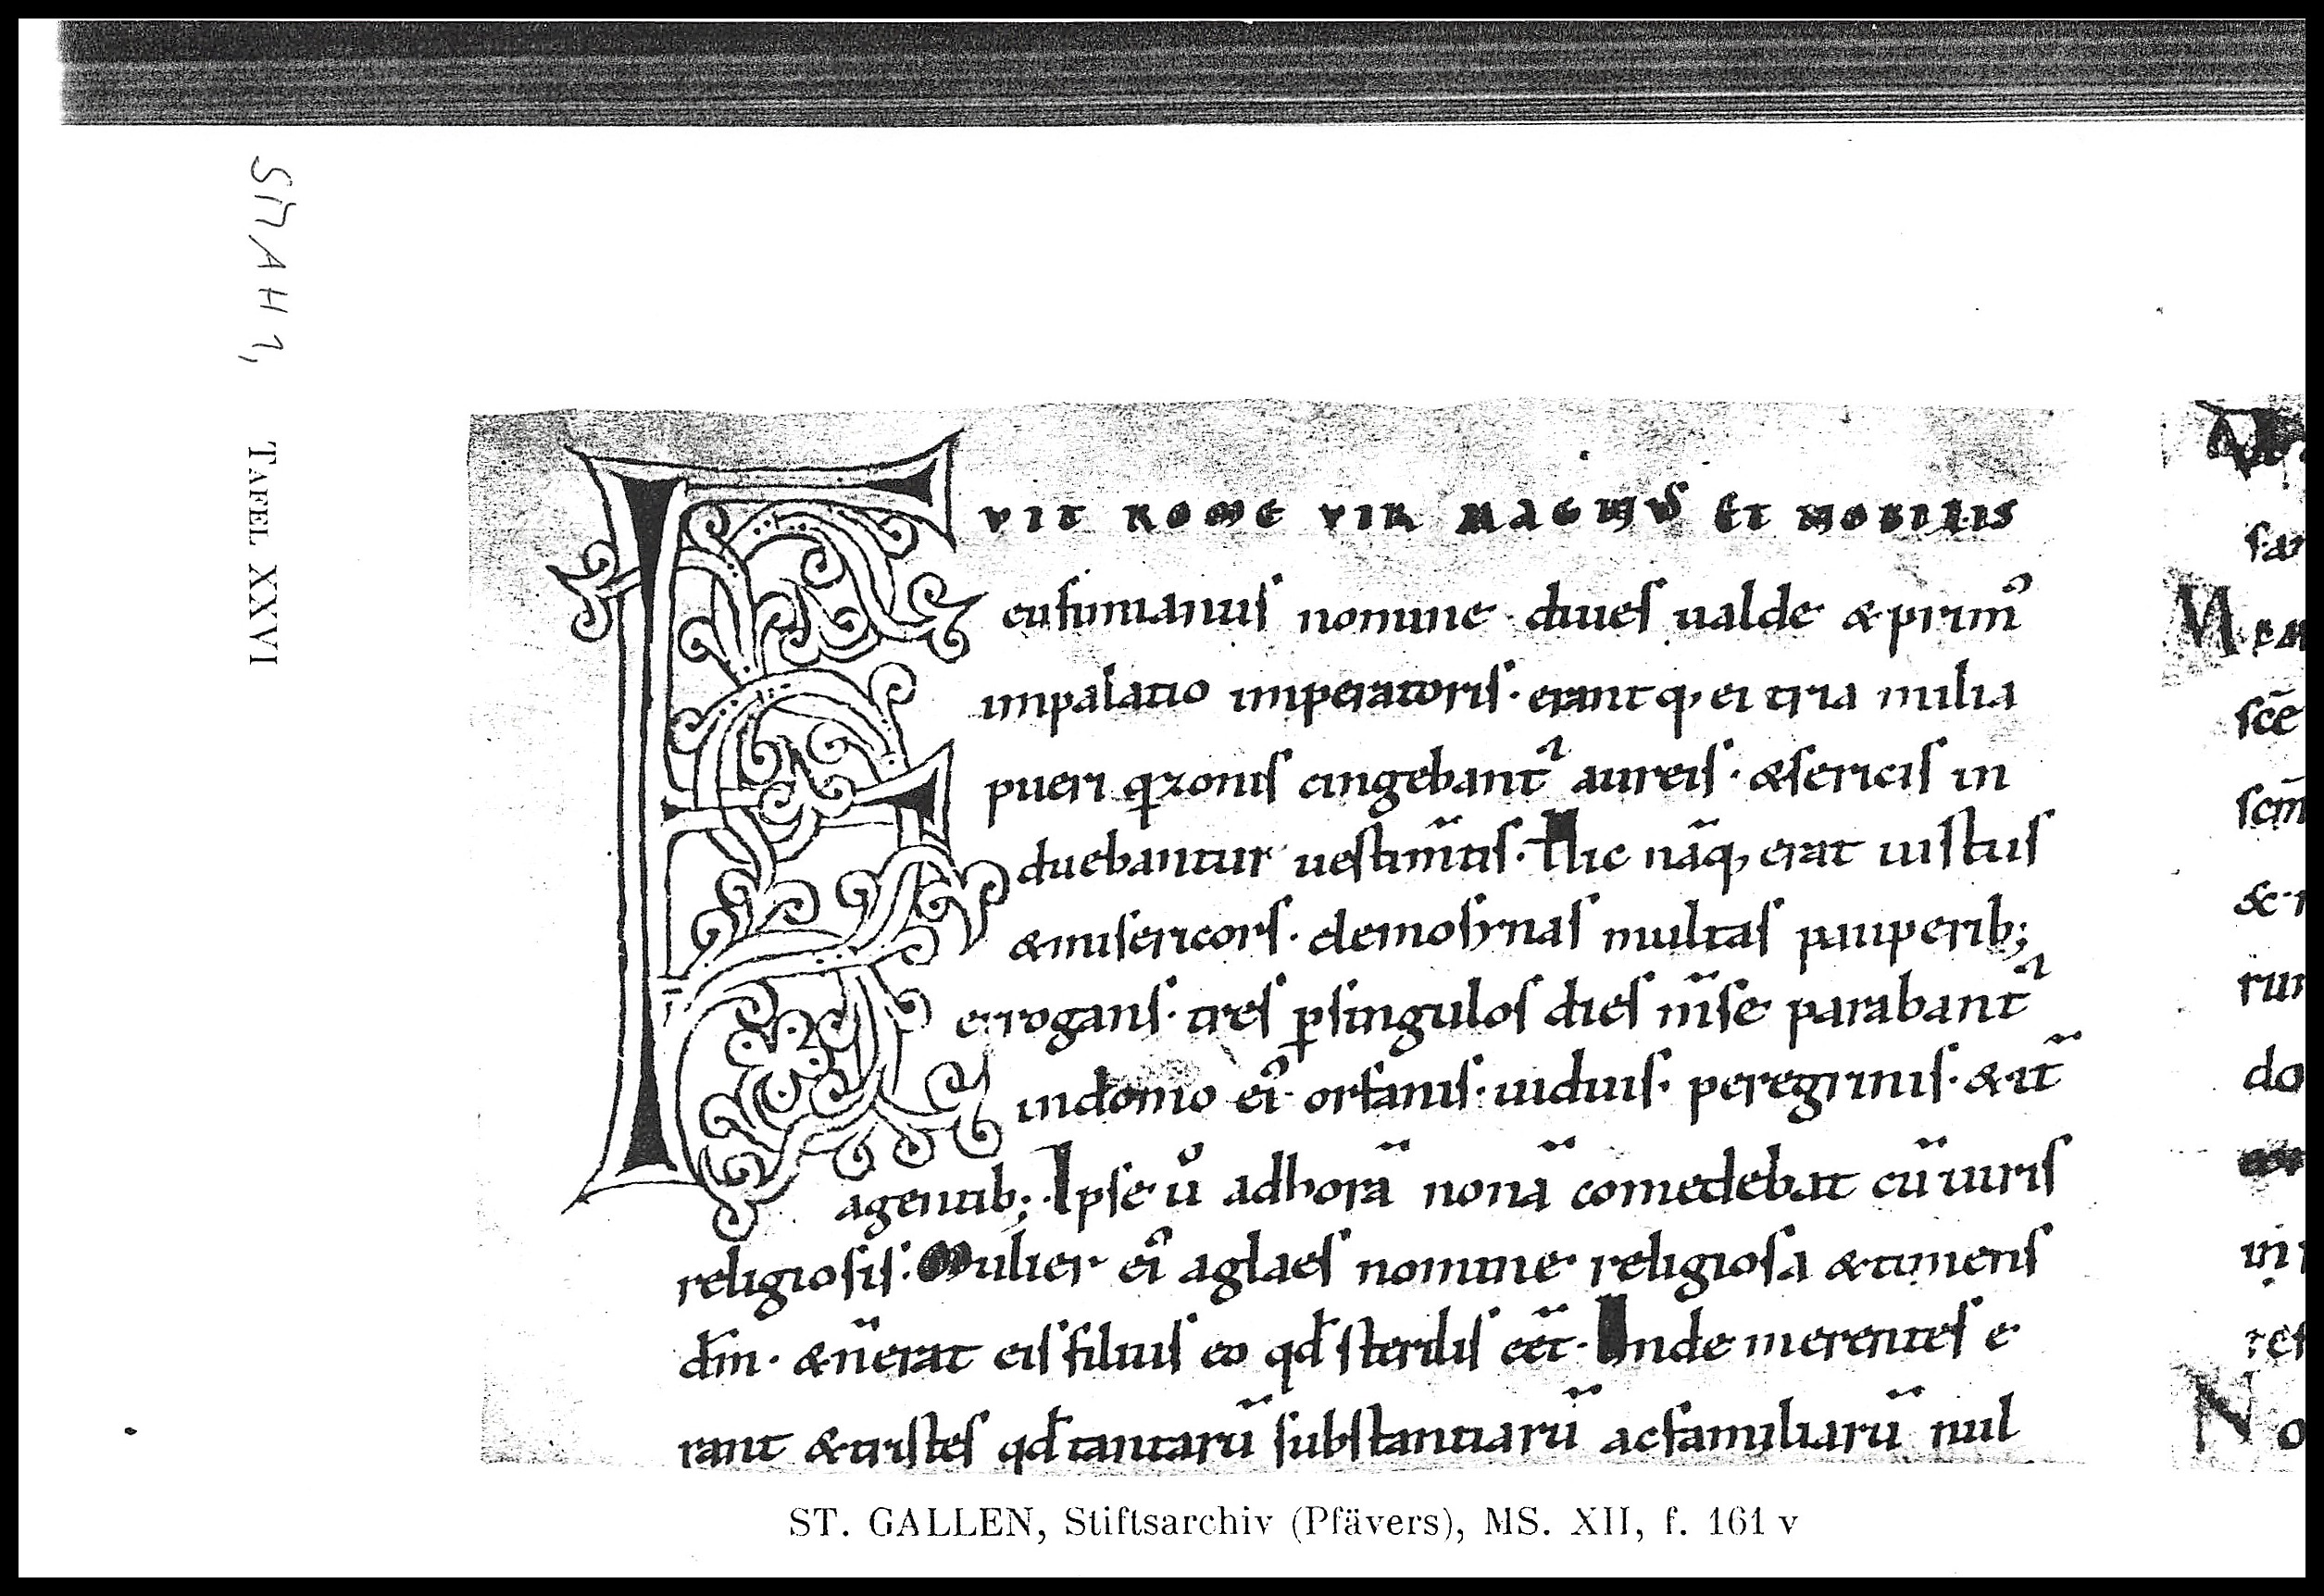 STAH 1,
TAFEL XXVI
FVIT ROME VIR MAGNUS ET NOBILIS
eufimianus nomine · diues ualde & prim᾿
inpalatio imperatoris · erantq, ei tria milia
pueri q̄ zonis cingebant᾿ aureis · & sericis in
duebantur uestim̄tis · Hic nāq, erat iustus
& misericors · elemosynas multas pauperib;
errogans · tres p̱singulos dies m̄se parabant᾿
indomo ei᾿ orfanis · uiduis · peregrinis · & it̄
agentib; · Ipse u᾿ adhorā nonā comedebat cū uiris
religiosis · Mulier ei᾿ aglaes nomine religiosa & timens
dm̄ · & n̄ erat eis filius eo qđ sterilis eēt · Unde merentes e
rant & tristes qđ tantarū substantiarū acfamiliarū nul
ST. GALLEN, Stiftsarchiv (Pfävers), MS. XII, f. 161 v